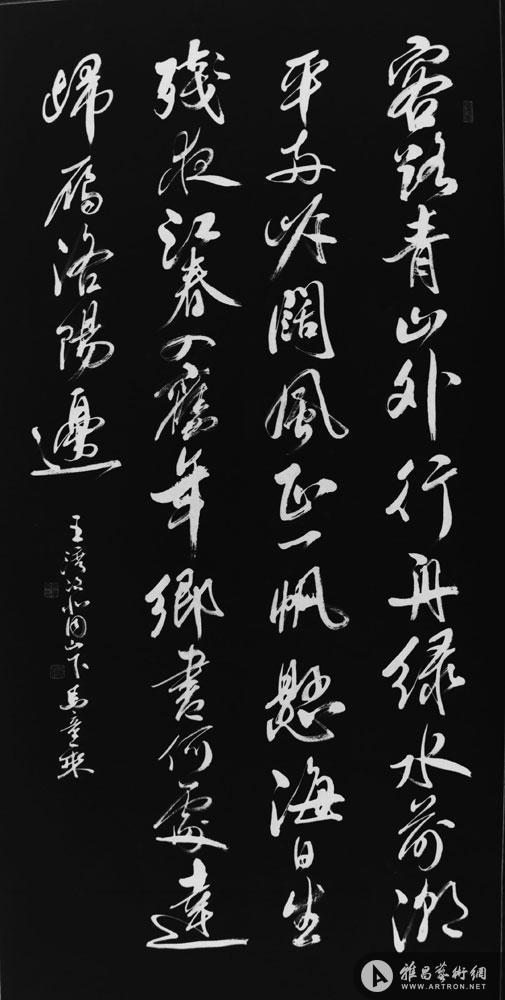 客路青山外行舟綠水前潮
平兩岸闊風正一帆懸海日生
殘夜江春入舊年鄉書何處達
歸雁洛陽邊
王灣次北固山下馬
雅昌藝術網
WWW.ARTRON.NET